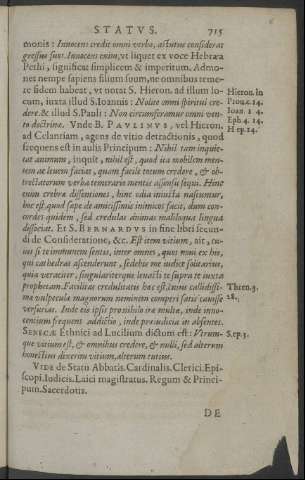 STATVS. 715
monis: Innocens credit omni verbo, astutus considerat
gressus suos. Innocens enim, vt liquet ex voce Hebræa
Pethi, significat simplicem & imperitum. Admo-
nes nempe sapiens filium suum, ne omnibus teme-
re fidem habeat, vt notat S. Hieron. ad illum lo-
cum, iuxta illud S. Ioannis: Nolite omni spiritui cre-
dere. & illud S. Pauli: Non circumferamur omni ven-
to doctrinæ. Vnde B. PAVLINVS, vel Hieron.
ad Celantiam, agens de vitio detractionis, quod
frequens est in aulis Principum: Nihil tam inquie-
tat animum, inquit, nihil est, quod ita mobilem men-
tem ac leuem faciat, quàm facile totum credere, & ob-
trectatorum verba temerario mentis assensu sequi. Hinc
enim crebræ dissensiones, hinc odia iniusta nascuntur,
hoc est, quod sæpe de amicissimis inimicos facit, dum con-
cordes quidem, sed credulas animas maliloqua lingua
dissociat. Et S. BERNARDVS in fine libri secun-
di de Consideratione, &c. Est item vitium, ait, cu-
ius si te immunem sentis, inter omnes, quos noui ex his,
qui cathedras ascenderunt, sedebis me iudice solitarius,
quia veraciter, singulariterque leuasti te supra te iuxta
prophetam. Facilitas credulitatis hæc est, cuius callidissi-
mæ vulpeculæ magnorum neminem comperi satis cauisse
versutias. Inde eis ipsis pro nihilo iræ multæ, inde inno-
centium frequens addictio, inde præiudicia in absentes.
SENECÆ Ethnici ad Lucilium dictum est: Vtrum-
que vitium est, & omnibus credere, & nulli, sed alterum
honestius dixerim vitium, alterum tutius.
VIDE de Statu Abbatis. Cardinalis. Clerici. Epi-
scopi. Iudicis. Laici magistratus. Regum & Princi-
pum. Sacerdotis.
DE
Hieron. in
Prou. c. 14.
Ioan. 1 4.
Eph. 4. 14.
H ep. 14.
Thren. 3.
28.
S. ep. 3.